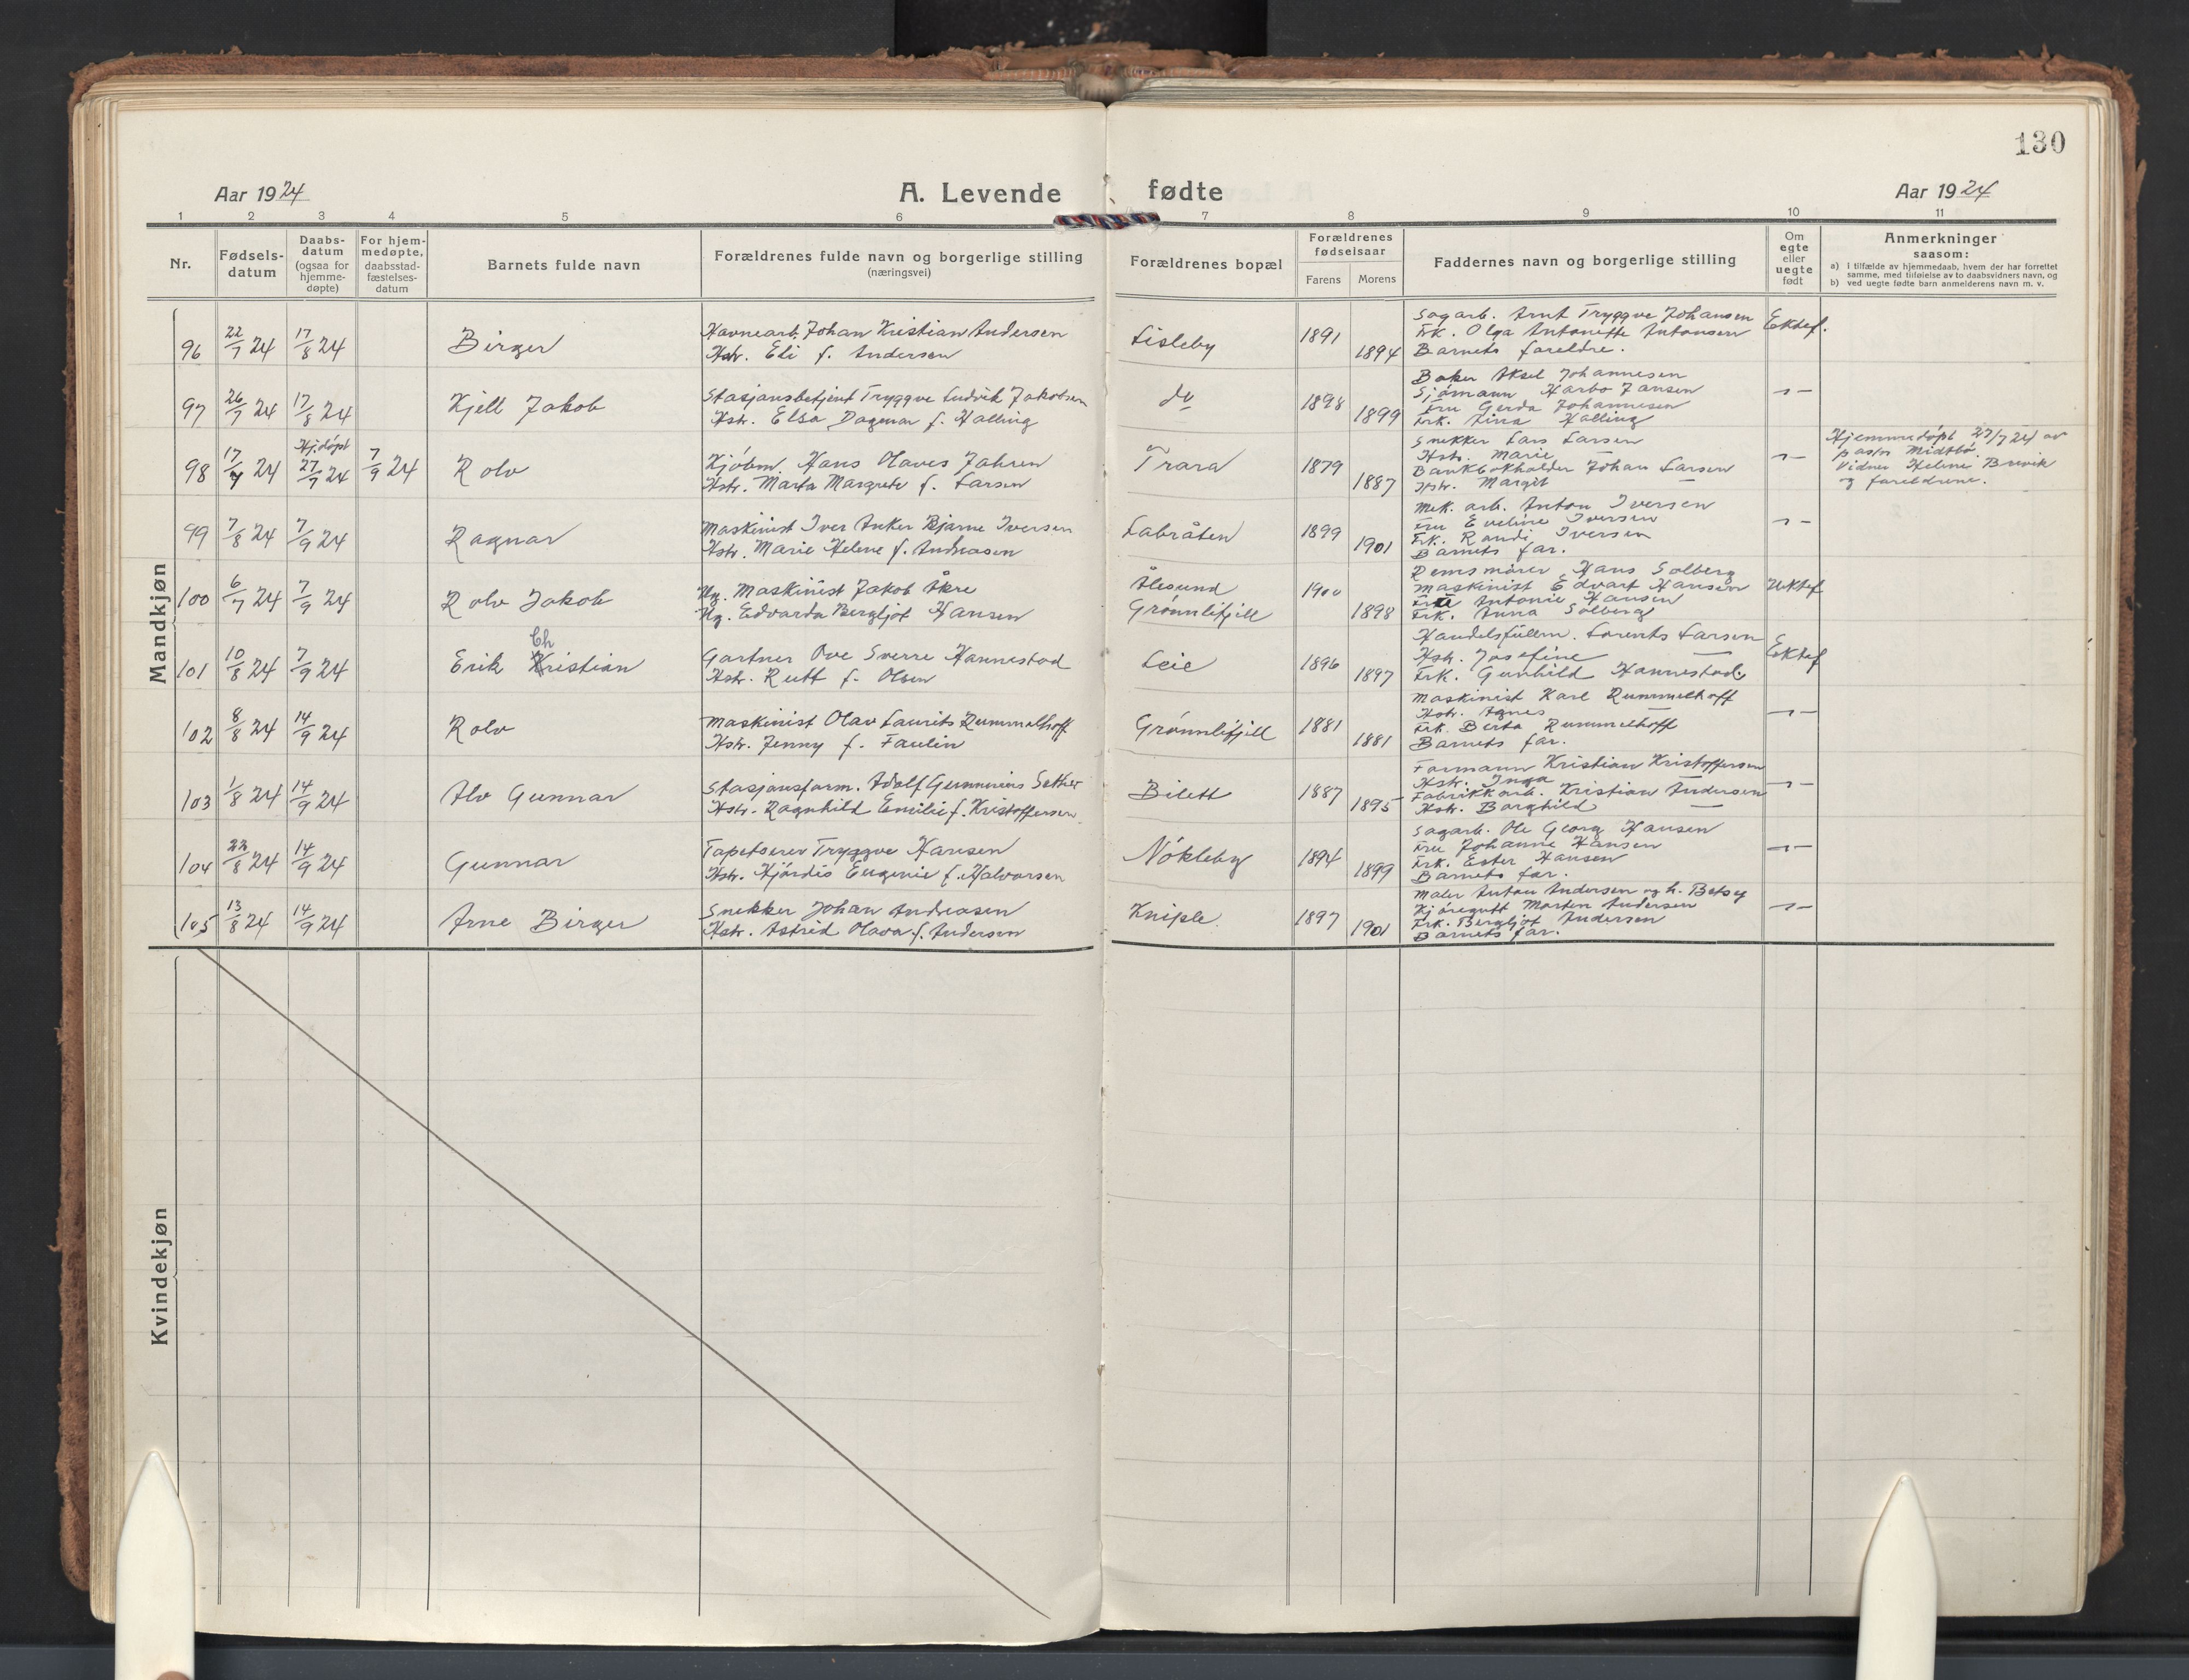 130
Aar 1924
A. Levende fødte
Aar 1924
1 2 3 4 5 6 7 8 9 10 11
Nr.
Fødsels-
datum
Daabs-
datum
(ogsaa for
hjemme-
døpte)
For hjem-
medøpte,
daabsstad-
fæstelses-
datum
Barnets fulde navn
Forældrenes fulde navn og borgerlige stilling
(næringsvei)
Forældrenes bopæl
Forældrenes
fødselsaar
Farens Morens
Faddernes navn og borgerlige stilling
Om
egte
eller
uegte
født
Anmerkninger
saasom:
a) i tilfælde av hjemmedaab, hvem der har forrettet
samme, med tilføielse av to daabsvidners navn, og
b) ved uegte fødte barn anmelderens navn m. v.
Mandkjøn
96 22/7 24 17/8 24 Birger
Havnearb. Johan Kristian Andersen
Hstr. Edi f. Andersen
Lisleby 1891 1894
Sagarb. Arnt Tryggve Johansen
Frk. Olga Antonette Antonsen
Barnets foreldre.
Ektef.
97 26/7 24 17/8 24 Kjell Jakob
Stasjonsbetjent Tryggve Ludvik Jakobsen
Hstr. Elsa Dagmar f. Halling
do 1898 1899
Baker Aksel Johannesen
Sjømann Harbo Jansen
Fru Gerda Johannesen
Frk. Lina Halling
— —
98 17/7 24 Hj.døpt 27/7 24 7/9 24 Rolv
Kjøbm. Hans Olaves Jahren
Hstr. Marta Margrete f. Larsen
Trara 1879 1887
Snekker Lars Larsen
Hstr. Marie —
Bankbokholder Johan Larsen
Hstr. Margit —
— —
Hjemmedøpt 27/7 24 av
pastor Midtbø.
Vidner Helene Brevik
og foreldrene.
99 7/8 24 7/9 24 Ragnar
Maskinist Iver Anker Bjarne Iversen
Hstr. Marie Helene f. Andreasen
Labråten 1899 1901
Mek. arb. Anton Iversen
Fru Eveline Iversen
Frk. Randi Iversen
Barnets far.
— —
100 6/7 24 7/9 24 Rolv Jakob
Ug. Maskinist Jakob Åkre
Ug. Edvarda Bergljot Hansen
Ålesund
Grønnlifjell
1900 1898
Remsmører Hans Solberg
Maskinist Edvart Hansen
Antonie Hansen
Frk. Anna Solberg
Uektef
101 10/8 24 7/9 24 Erik Christian
Gartner Ove Sverre Hannestad
Hstr. Rutt f. Olsen
Leie 1896 1897
Handelsfullm. Lorents Larsen
Hstr. Josefine —
Frk. Gunhild Hannestad.
Ektef
102 8/8 24 14/9 24 Rolv
Maskinist Olav Laurits Rummelhoff
Hstr. Jenny f. Faulin
Grønnlifjell 1881 1881
Maskinist Karl Rummelhoff
Hstr. Agnes —
Frk. Berta Rummelhoff
Barnets far.
— —
103 1/8 24 14/9 24 Alv Gunnar
Stasjonsform. Adolf Gunnerius Sether
Hstr. Ragnhild Emilie f. Kristoffersen.
Bilett 1887 1895
Formann Kristian Kristoffersen
Hstr. Inga —
Fabrikkarb. Kristian Andersen
Hstr. Borghild —
— —
104 22/8 24 14/9 24 Gunnar
Tapetserer Tryggve Hansen
Hstr. Hjørdis Eugenie f. Halvorsen
Nökleby 1894 1899
Sagarb. Ole Georg Hansen
Fru Johanne Hansen
Frk. Ester Hansen
Barnets far.
— —
105 13/8 24 14/9 24 Arne Birger
Snekker Johan Andreasen
Hstr. Astrid Olava f. Andersen
Kniple 1897 1901
Maler Anton Andersen og h. Betsy
Kjøregutt Morten Andersen
Frk. Bergljot Andersen
Barnets far.
— —
Kvindekjøn